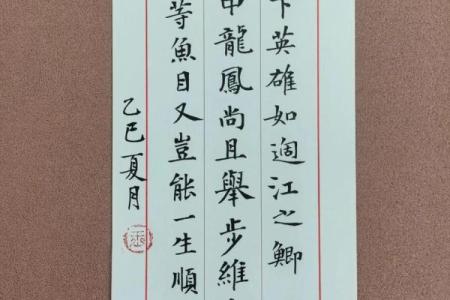 下英雄如過江之鯽
中龍鳳尚且舉步維
等魚目又豈能一生順
乙巳夏月